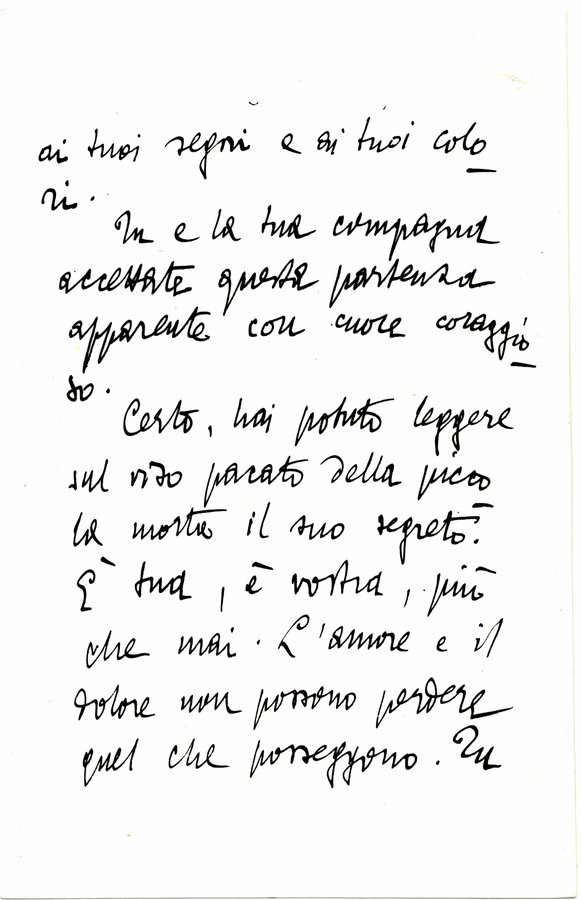 ai tuoi segni e ai tuoi colo
ri.
Tu e la tua compagna
accettate questa partenza
apparente con cuore coraggio
so.
Certo, hai potuto leggere
sul viso pacato della picco
la morta il suo segreto.
È tua, è vostra, più
che mai. L'amore e il
dolore non possono perdere
quel che posseggono. Tu